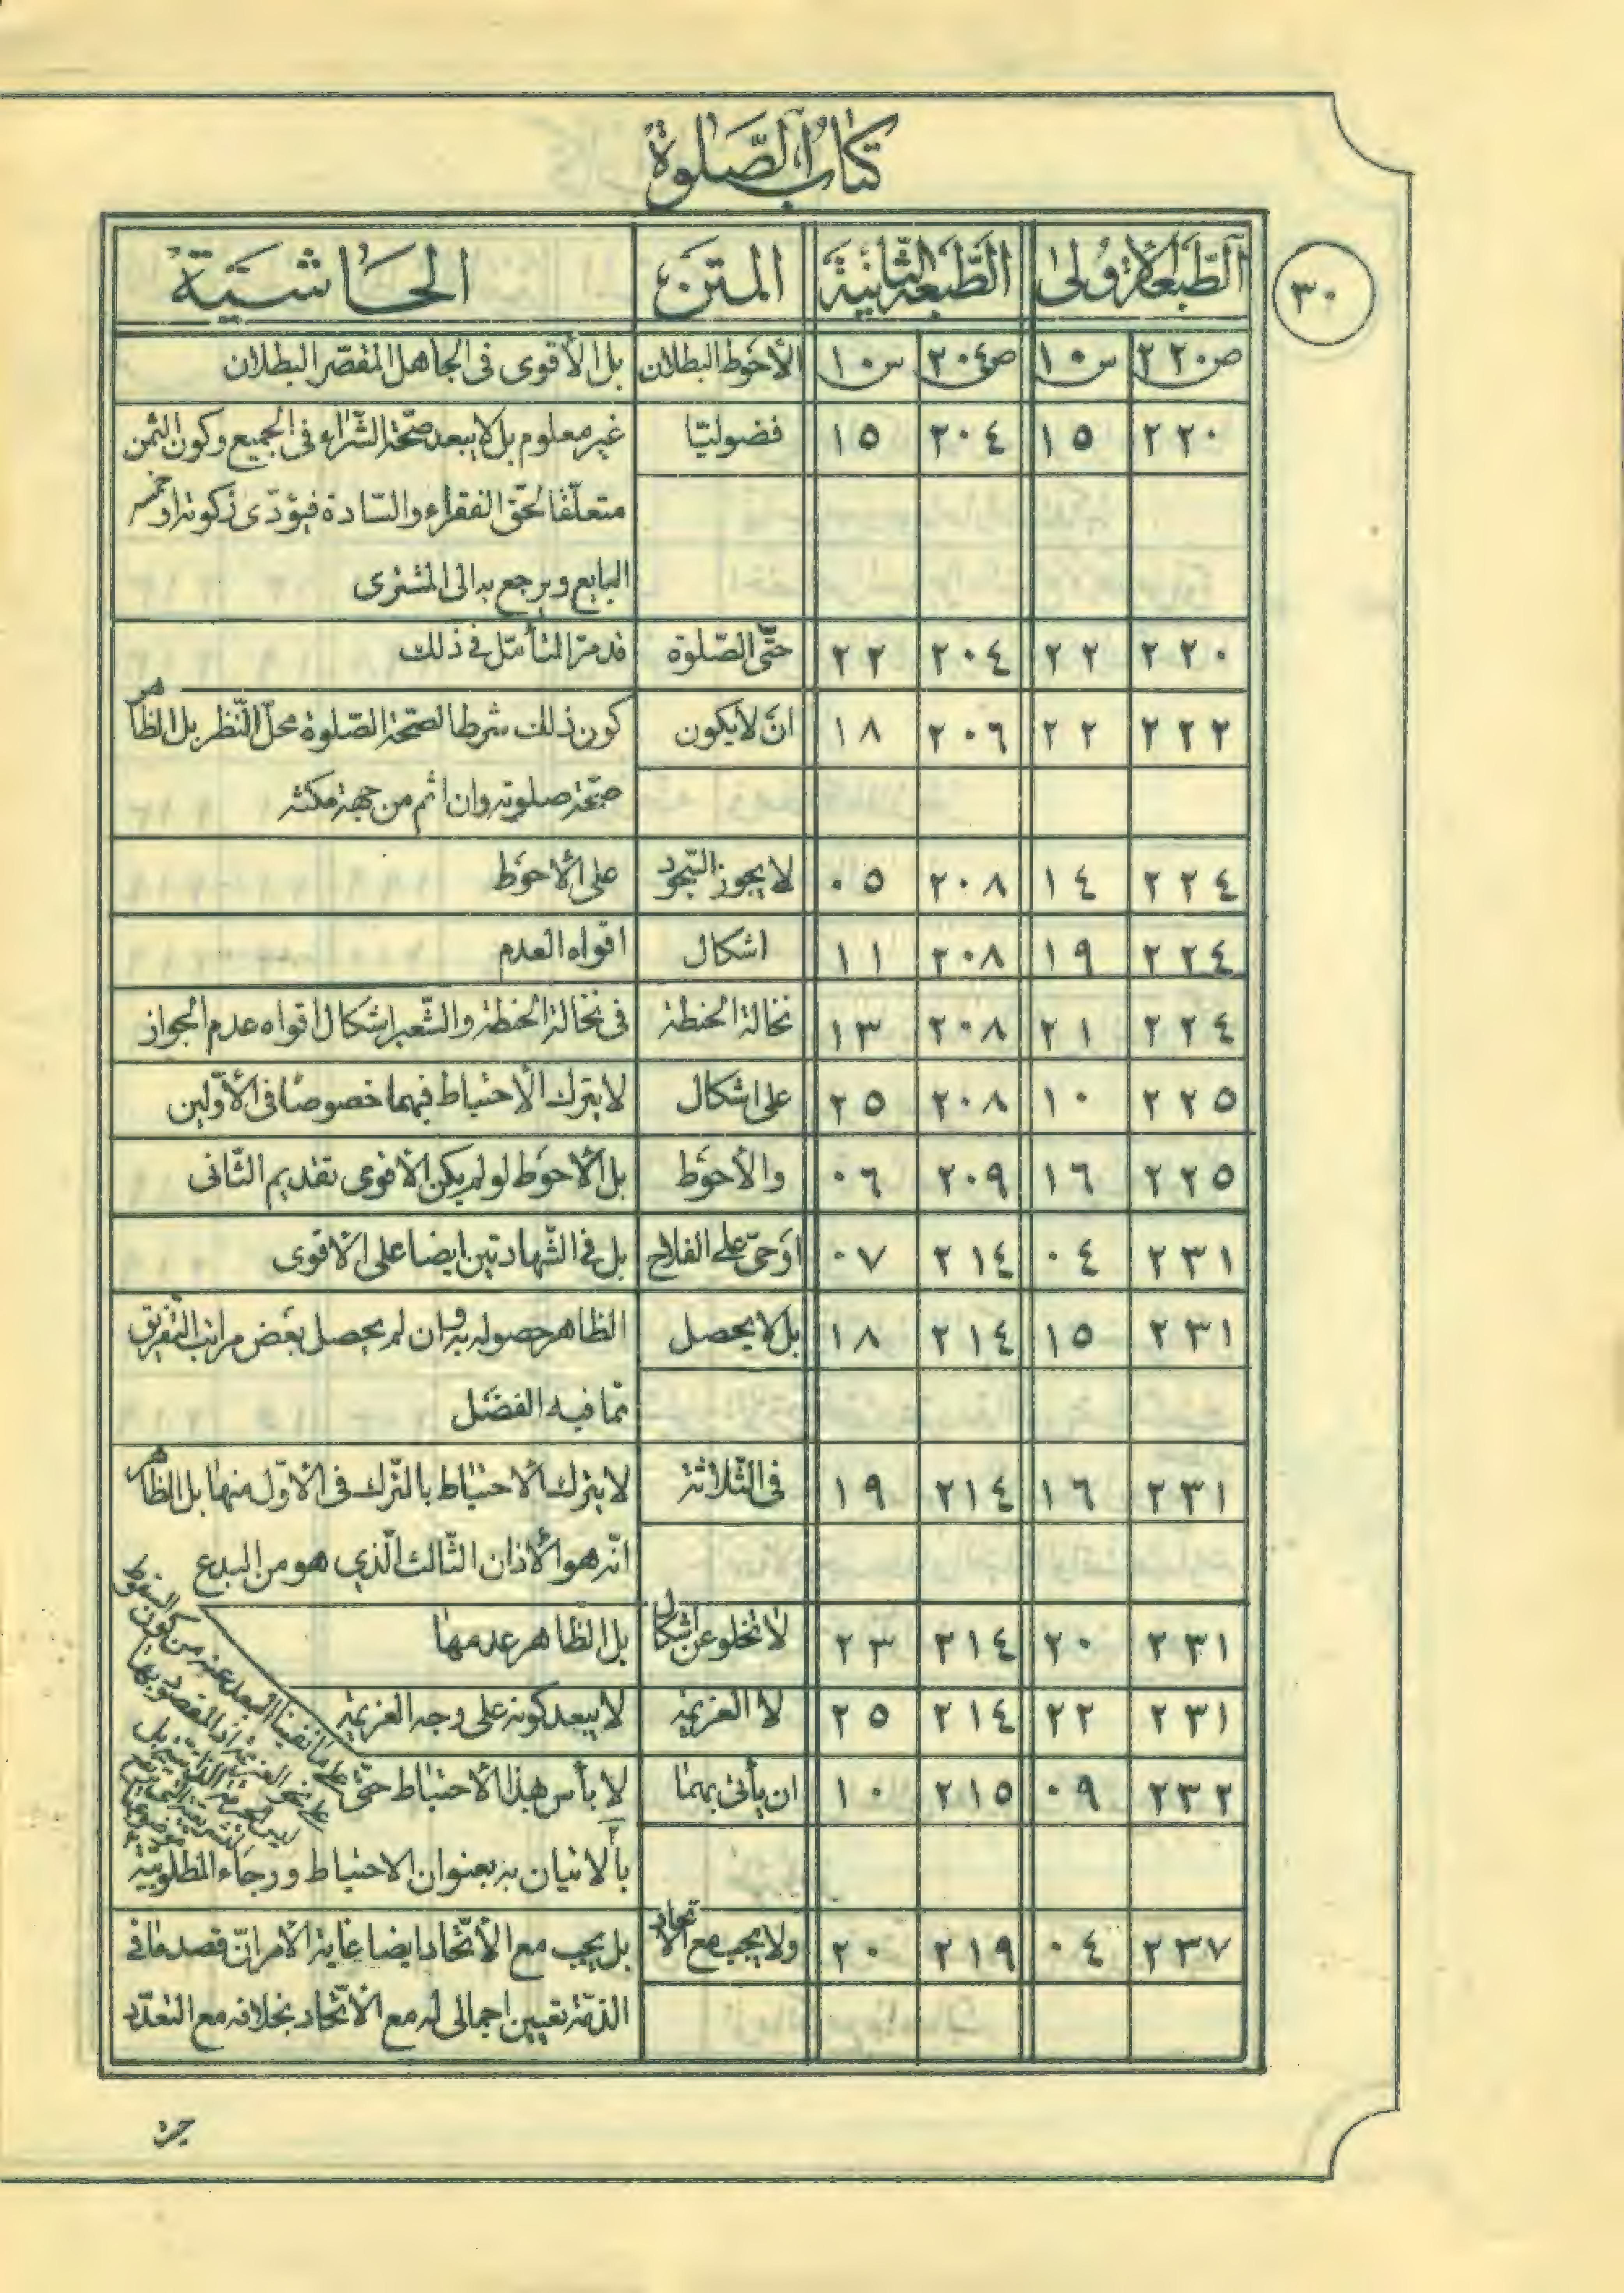 كتاب الصّلوة
٣٠
الطّبعة الأولى الطّبعة الثّانية المتن الحاشية
ص٢٢٠ س١٠ ص٢٠٤ س١٠ الأحوط البطلان بل الأقوى فى الجاهل المقصّر البطلان
٢٢٠ ١٥ ٢٠٤ ١٥ فضوليّا غير معلوم بل لا يبعد صحّة الشّراء فى الجميع وكون الثمن
متعلّقا لحقّ الفقراء والسّادة فيؤدّى زكوته او خمسه
البايع ويرجع به الى المشترى
٢٢٠ ٢٢ ٢٠٤ ٢٢ حتّى الصّلوة قد مرّ التأمّل في ذلك
٢٢٢ ٢٢ ٢٠٦ ١٨ ان لا يكون كون ذلك شرطا لصحّة الصّلوة محلّ النّظر بل الظاهر
صحّة صلوته وان اثم من جهة مكثه
٢٢٤ ١٤ ٢٠٨ ٠٥ لا يجوز السّجود على الأحوَط
٢٢٤ ١٩ ٢٠٨ ١١ اشكال اقواه العدم
٢٢٤ ٢١ ٢٠٨ ١٣ نخالة الحنطة فى نخالة الحنطة والشّعير اشكال اقواه عدم الجواز
٢٢٥ ١٠ ٢٠٨ ٢٥ على اشكال لا يترك الأحتياط فيهما خصوصًا فى الأوّلين
٢٢٥ ١٦ ٢٠٩ ٠٦ والأحوَط بل الأحوَط لو لم يكن الأقوى تقديم الثّانى
٢٣١ ٠٤ ٢١٤ ٠٧ اوَحىّ على الفلاح بل في الشّهادتين ايضا على الأقوى
٢٣١ ١٥ ٢١٤ ١٨ بل لا يحصل الظاهر حصوله به وان لم يحصل بعض مراتب التّفريق
ممّا فيه الفضل
٢٣١ ١٦ ٢١٤ ١٩ فى الثّلاثة لا يترك الأحتياط بالتّرك فى الأوّل منها بل الظاهر
انّه هو الأذان الثّالث الّذي هو من البدع
٢٣١ ٢٠ ٢١٤ ٢٣ لا تخلو عن اشكال بل الظاهر عدمها
٢٣١ ٢٢ ٢١٤ ٢٥ لا العزيمة لا يبعد كونه على وجه العزيمة
٢٣٢ ٠٩ ٢١٥ ١٠ ان يأتى بهما لا بأس بهذا الأحتياط حتّى على ما نفينا البعد عنه من كون السقوط
على نحو العزيمة اذ المقصود بها
بالأتيان به بعنوان الاحتياط ورجاء المطلوبيّة
٢٣٧ ٠٤ ٢١٩ ٢٠ ولا يجب مع الأتحاد بل يجب مع الأتّحاد ايضا غاية الأمر انّ قصد ما في
الذمّة تعيين اجمالى له مع الأتّحاد بخلافه مع التعدّد